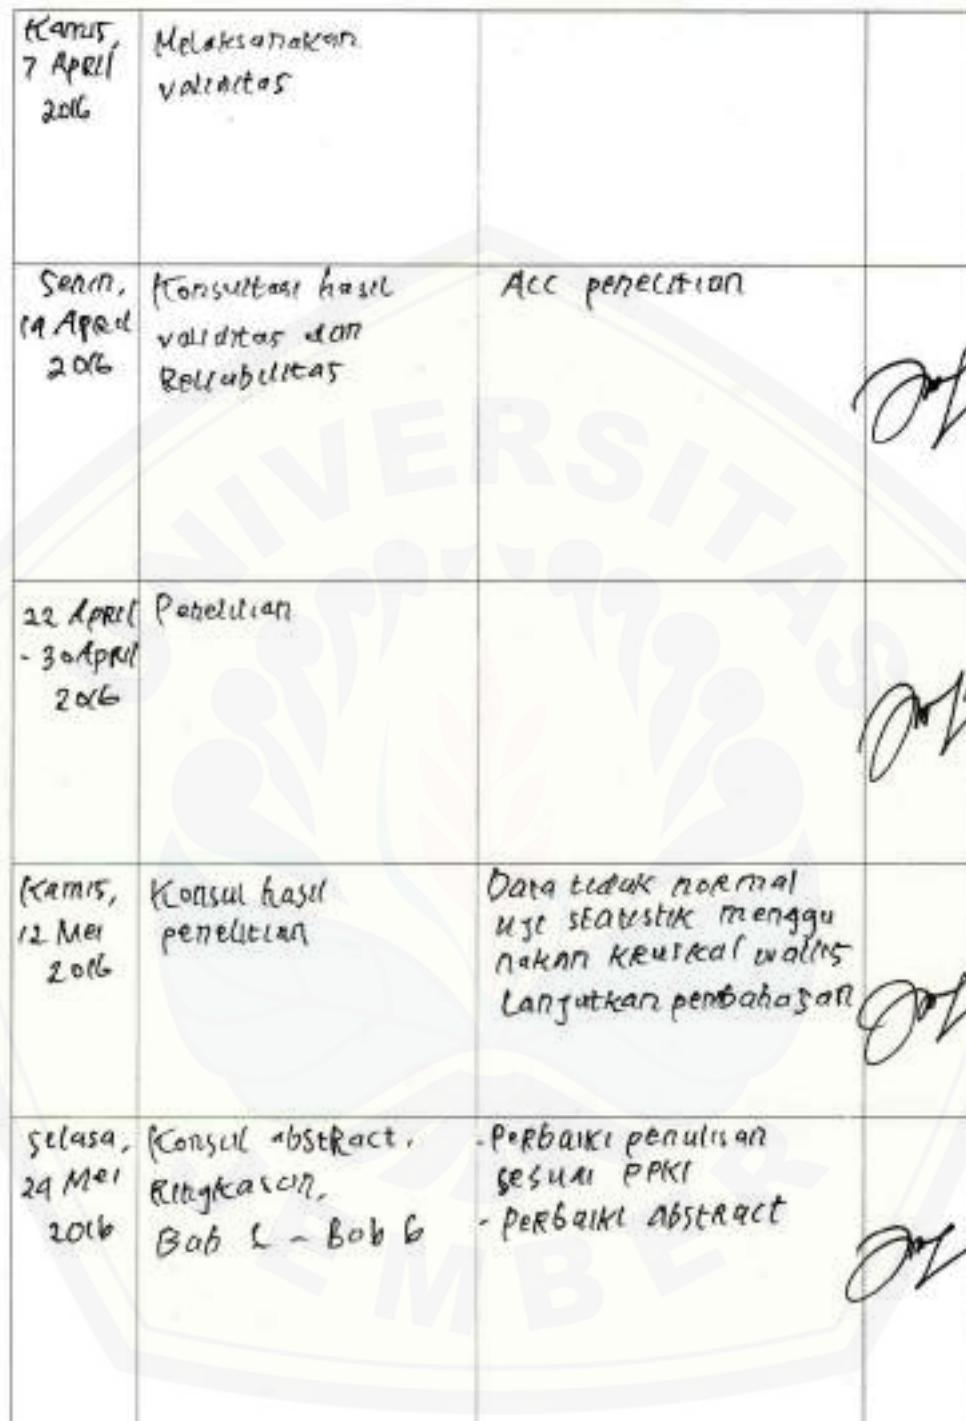 Kamis,
7 April
2016
Melaksanakan
validitas
Senin,
2016
Konsultasi hasil
validitas dan
Reliabilitas
Acc penelitian
22 April
- 30 April
2016
Penelitian
Kamis,
12 Mei
2016
Konsul hasil
penelitian
Data tidak normal
uji statistik menggu
nakan kruskal wallis
Lanjutkan pembahasan
Selasa,
24 Mei
2016
Konsul abstract,
Ringkasan,
Bab 1 - Bab 6
- Perbaiki penulisan
sesuai PPKI
- Perbaiki Abstract
UNIVERSITAS
JEMBER